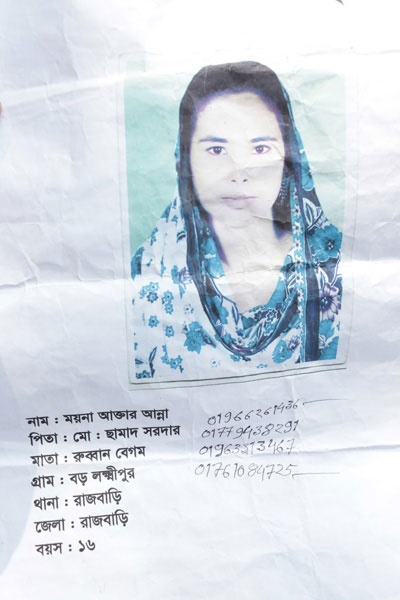 নাম : ময়না আক্তার আন্না
পিতা : মো : ছামাদ সরদার
মাতা : রুব্বান বেগম
গ্রাম : বড় লক্ষ্মীপুর
থানা : রাজবাড়ি
জেলা : রাজবাড়ি
বয়স : ১৬
01966261436
01779438291
01963313467
01761084725